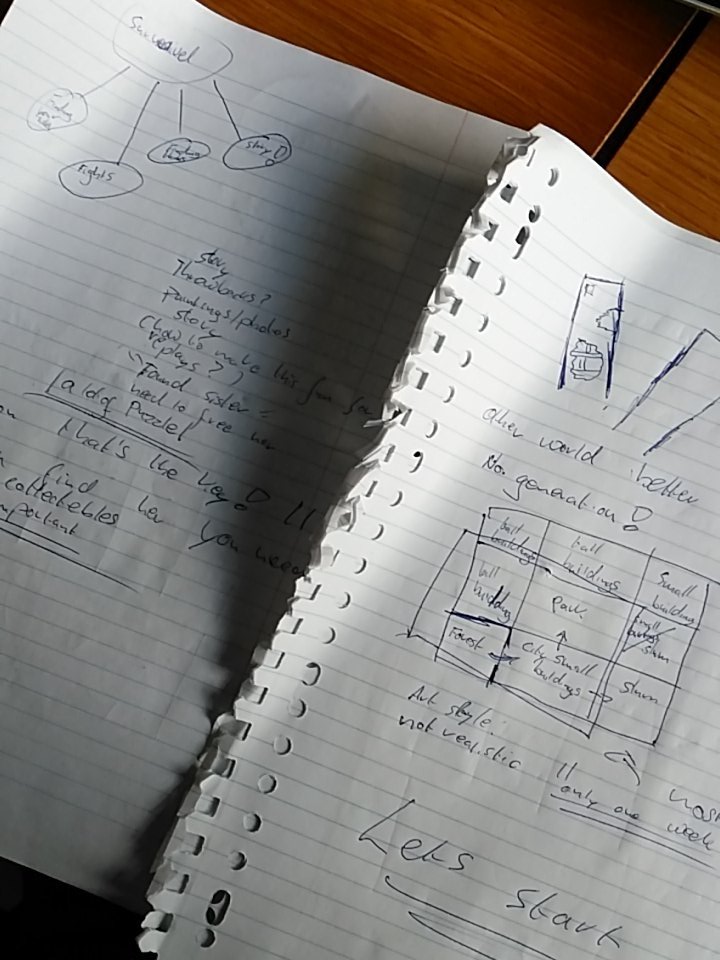 Survavel
Finding
Fights
Finding
Story!
Story
Throwbacks?
Paintings/photos
Story
(how to make this fun for
replays?)
Found sister
need to free her
a lot of Puzzle!
that's the key! !!
find her you need
collectebles
important
other world better
No. generation!
tall buildings
tall buildings
Small building
tall building
Park
small buildings
slum
Forest
City small buildings
slum
Art style:
not realistic
!!
only one week
most
Lets start